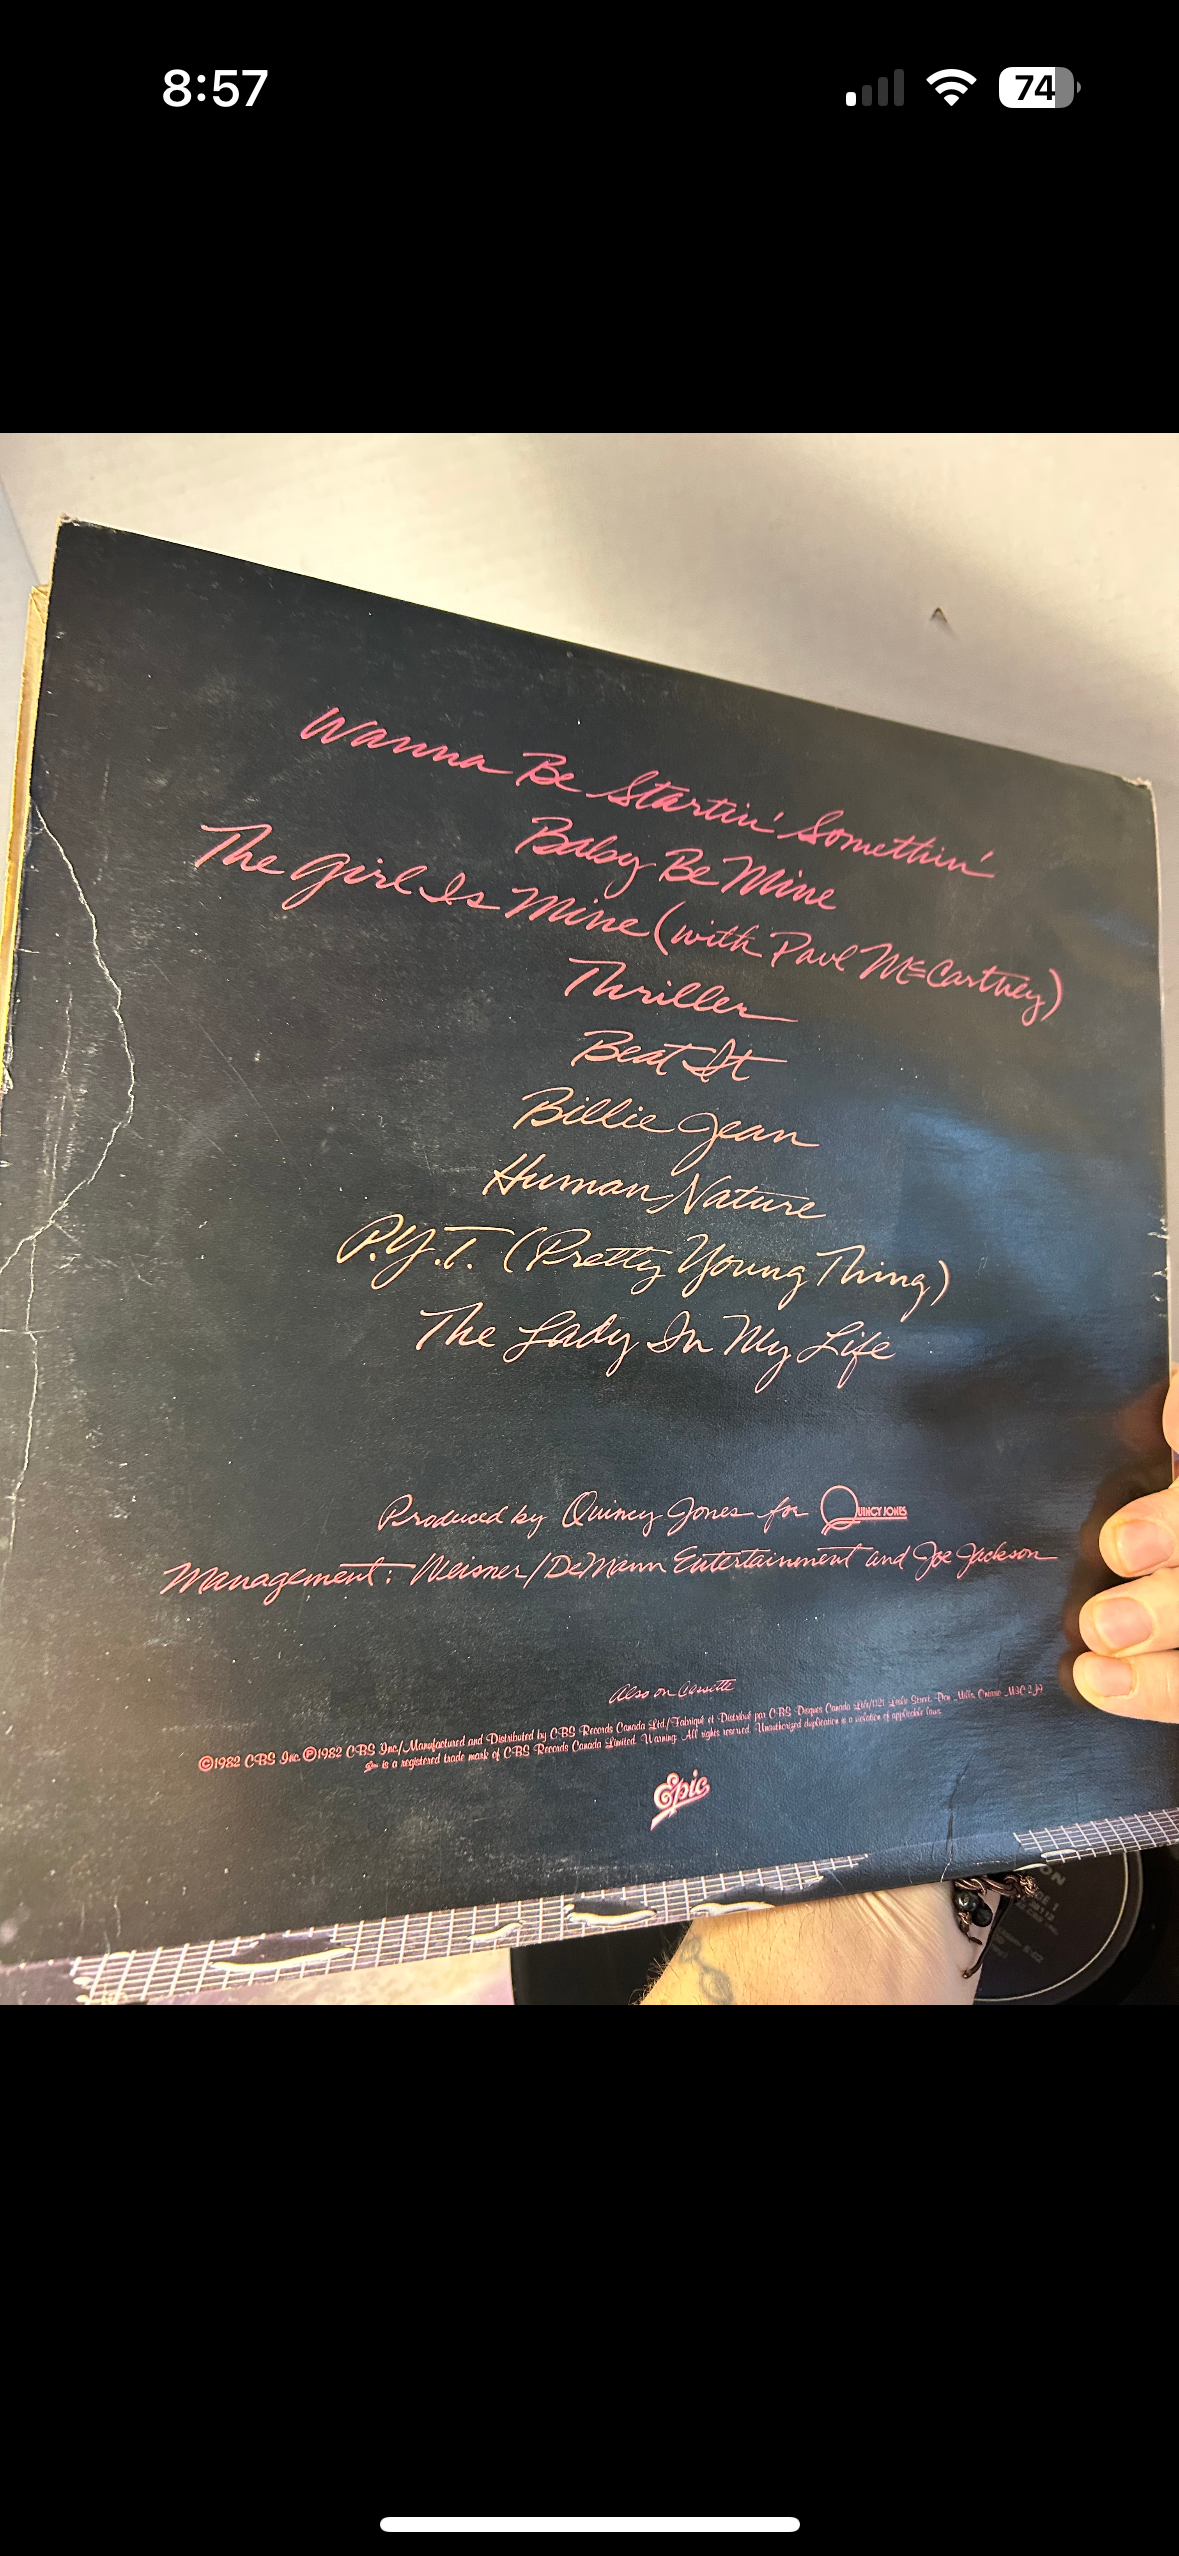 8:57
74
Wanna Be Startin' Somethin'
Baby Be Mine
The Girl Is Mine (with Paul McCartney)
Thriller
Beat It
Billie Jean
Human Nature
P.Y.T. (Pretty Young Thing)
The Lady In My Life
Produced by Quincy Jones for QUINCY JONES
Management: Weisner/DeMann Entertainment and Joe Jackson
Also on Cassette
©1982 CBS Inc. ℗1982 CBS Inc/Manufactured and Distributed by CBS Records Canada Ltd/Fabriqué et Distribué par CBS Disques Canada Ltée/1121 Leslie Street, Don Mills, Ontario M3C 2J9
is a registered trade mark of CBS Records Canada Limited. Warning: All rights reserved. Unauthorized duplication is a violation of applicable laws.
Epic